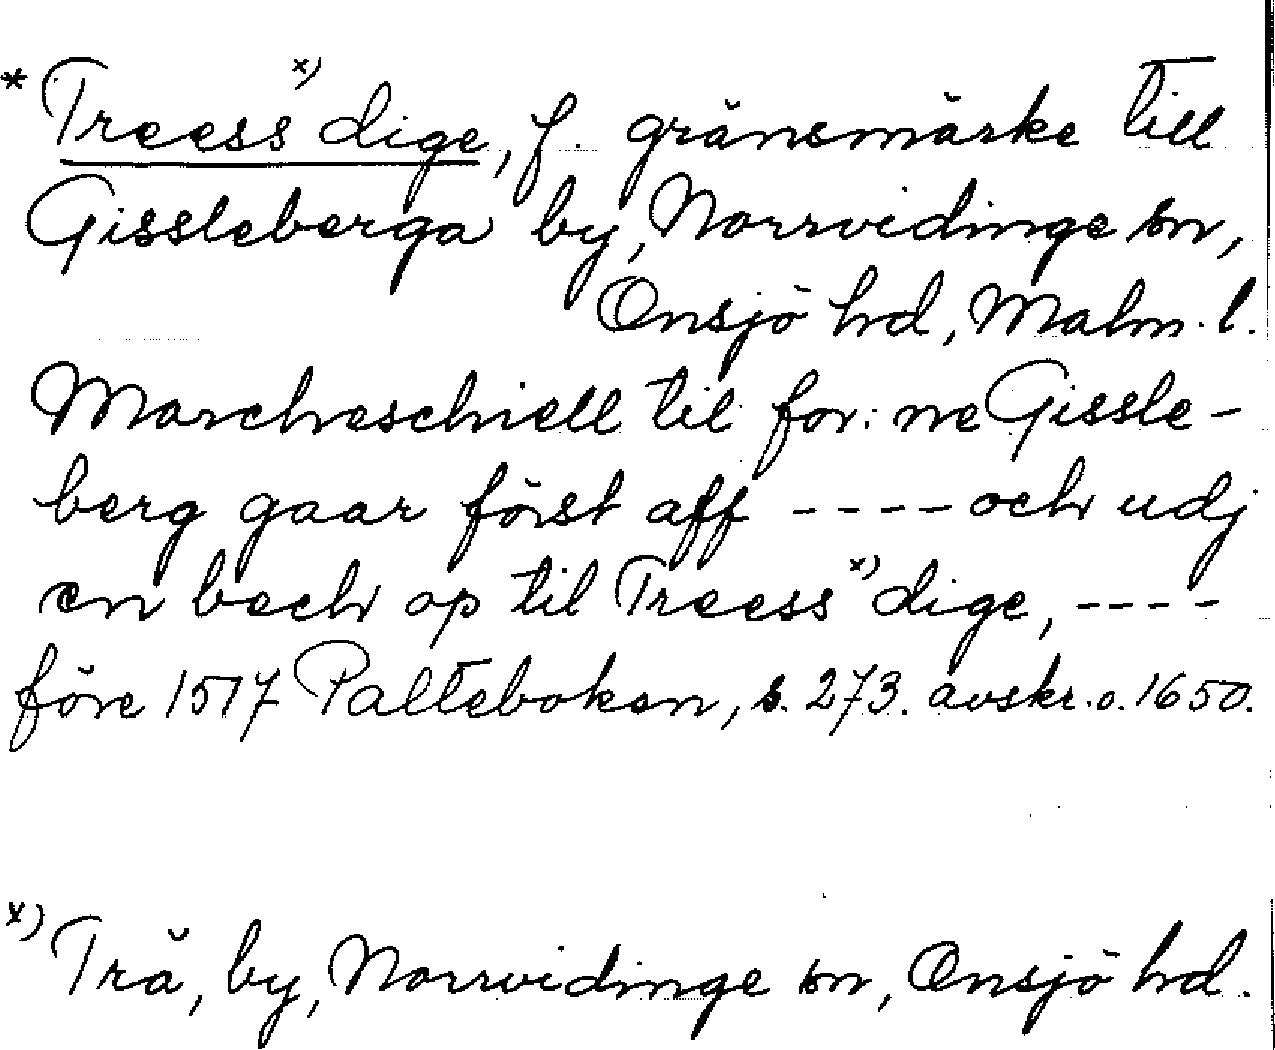 * Treess x) dige, f. gränsmärke till
Gissleberga by, Norrvidinge sn,
Onsjö hd, Malm. l.
Marcheschiell til for: ne Gissle-
berg gaar först aff ---- och udj
en bech op til Treess x) dige, ----
före 1517 Palteboken, s. 273. avskr. o. 1650.
x) Trä, by, Norrvidinge sn, Onsjö hd.